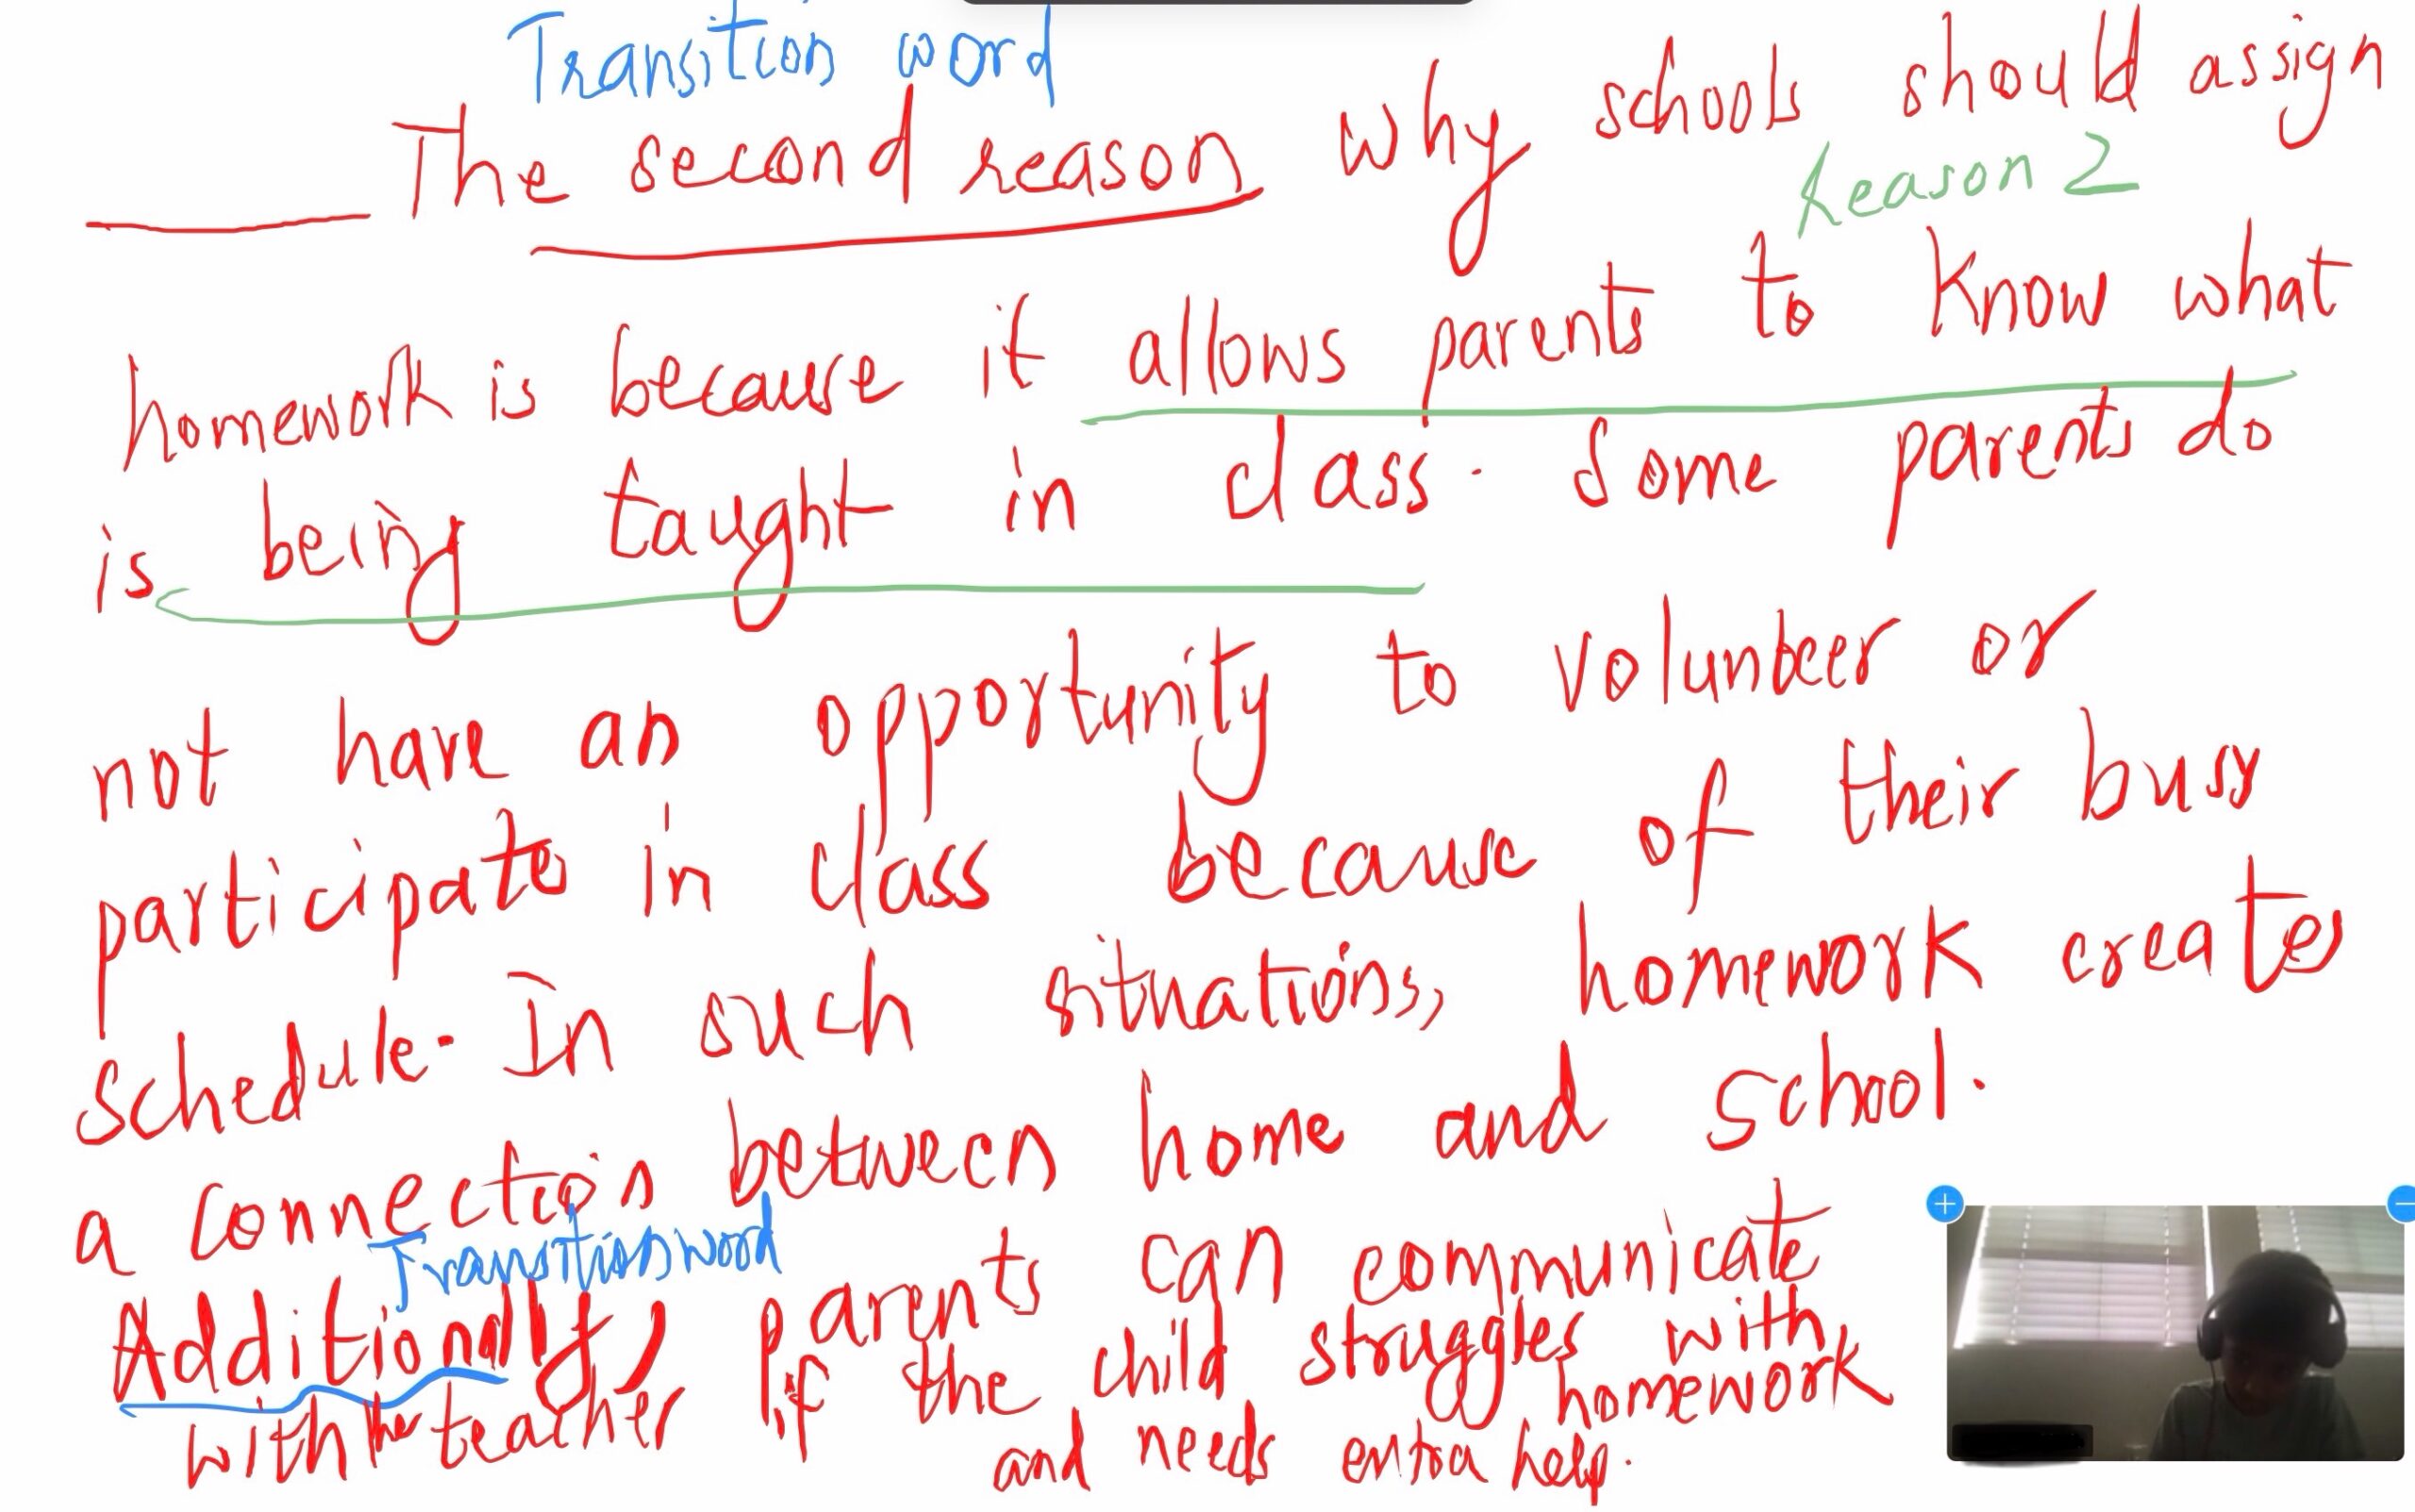 Transition word
The second reason why schools should assign
Reason 2
homework is because it allows parents to know what
is being taught in class. Some parents do
not have an opportunity to volunteer or
participate in class because of their busy
schedule. In such situations, homework creates
a connection between home and school.
Transition word
Additionally, parents can communicate
with the teacher if the child struggles with homework
and needs extra help.